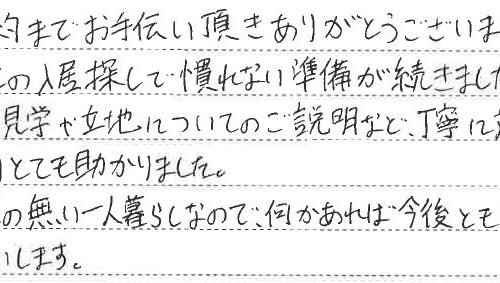 までお手伝い頂きありがとうございま
の入居探しで慣れない準備が続きまし
見学や立地についてのご説明など、丁寧に
とても助かりました。
の無い一人暮らしなので、何かあれば今後とも
します。